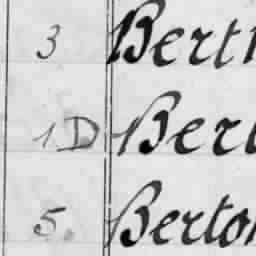 3 Bert
1D Ber
5. Berto